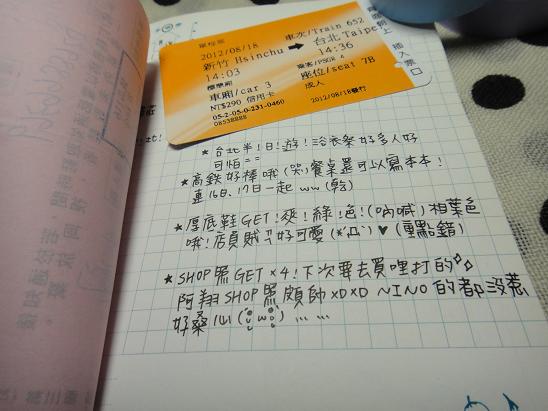 單程票
2012/08/18
車次/Train 652
新竹 Hsinchu ➡ 台北 Taipei
14:03 14:36
標準廂
乘客/PSGR 4
車廂/car 3 座位/seat 7B
NT$290 信用卡 成人
05-2-05-0-231-0460
08538888
2012/08/18發行
插入票口
★台北半!日!遊!浴衣祭好多人好
可怕= =
★高鐵好棒哦(哭)餐桌還可以寫本本!
連16日、17日一起ww(乾)
★厚底鞋GET!夾!綠!色!(吶喊)相葉色
哦!店員賊 好可愛(*´Д`)♥(重點錯)
★SHOP照GET×4!下次要去買哩打的
阿翔SHOP照頗帥XDXD NINO的都沒惹
好桑心(;w;)……